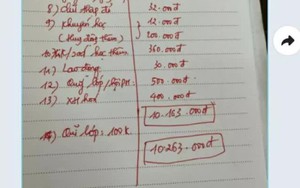 8) Chữ thập đỏ 32.000đ
9) Khuyến học 12.000đ
(Huy động thêm) 200.000đ
học thêm 360.000đ
11) Lao động 30.000đ
12) Quỹ lớp/ 500.000đ
13) XH hoá 400.000đ
10.163.000đ
Quĩ lớp: 100k
10.263.000đ